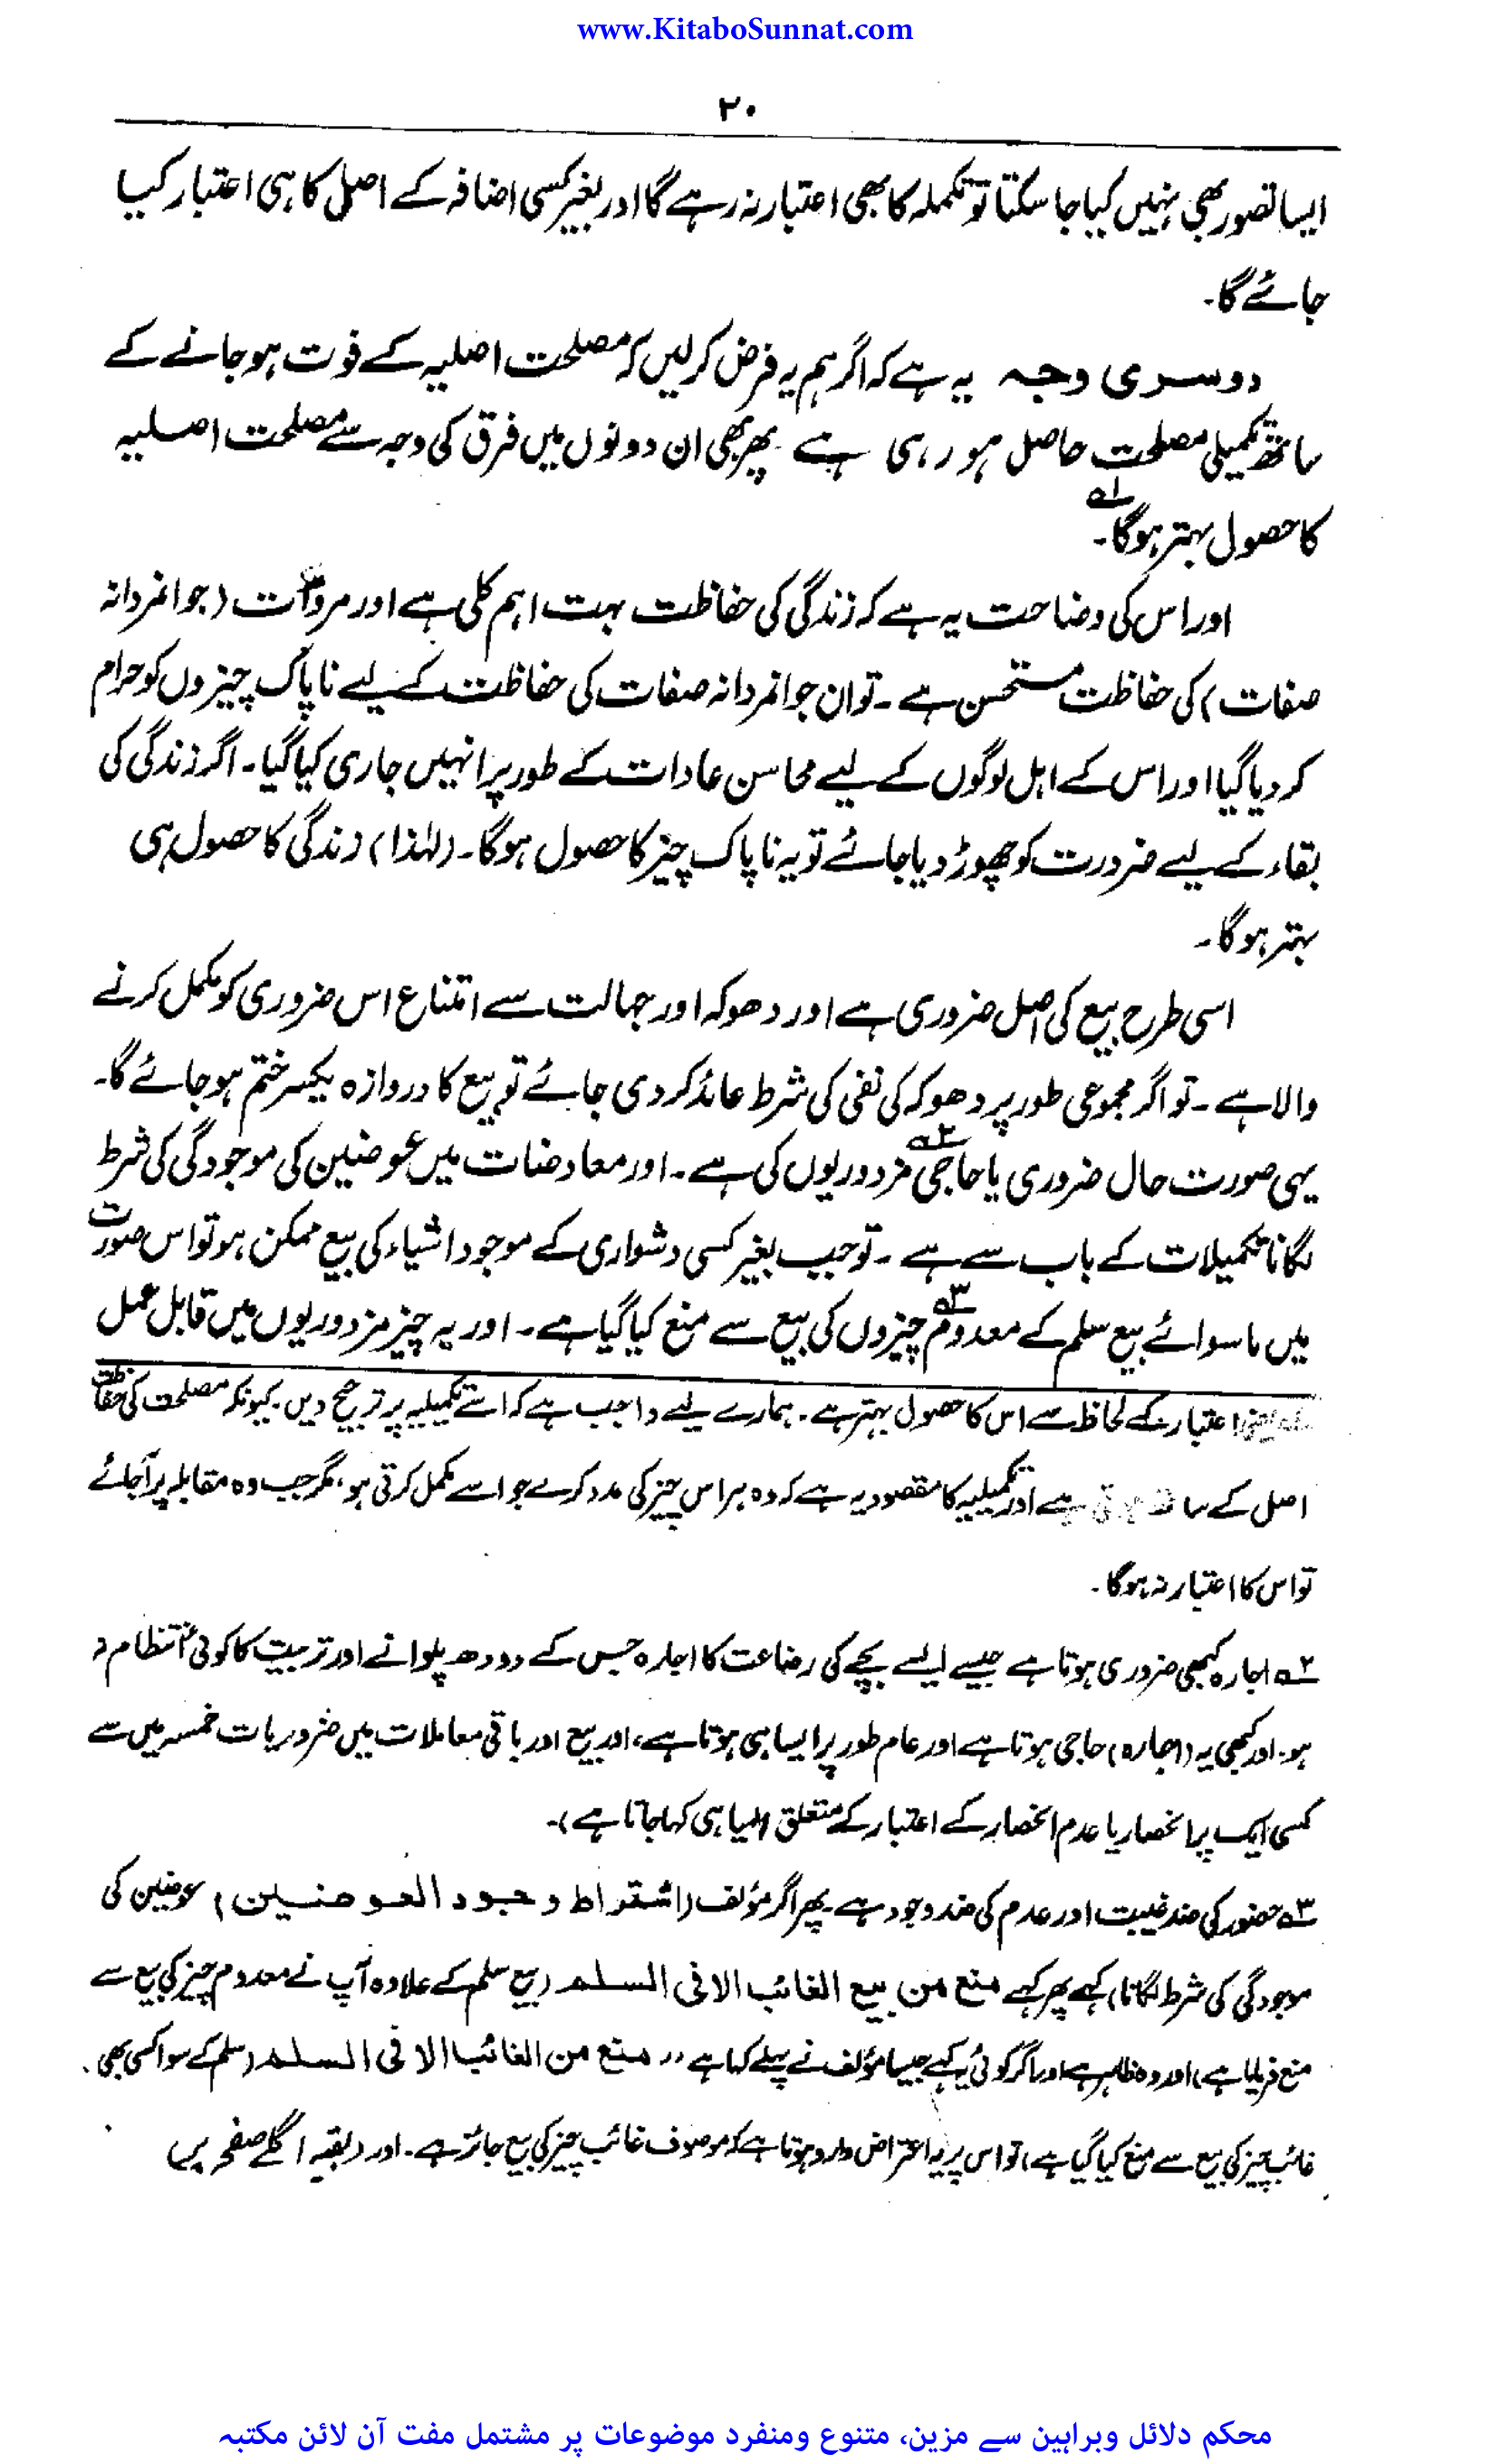 www.KitaboSunnat.com
۲۰
ایسا تصور بھی نہیں کیا جا سکتا تو تکملہ کا بھی اعتبار نہ رہے گا اور بغیر کسی اضافہ کے اصل کا ہی اعتبار کیا
جائے گا۔
دوسری وجہ یہ ہے کہ اگر ہم یہ فرض کر لیں کہ مصلحت اصلیہ کے فوت ہو جانے کے
ساتھ تکمیلی مصلحت حاصل ہو رہی ہے پھر بھی ان دونوں میں فرق کی وجہ سے مصلحت اصلیہ
کا حصول بہتر ہوگا۔ ۱؎
اور اس کی وضاحت یہ ہے کہ زندگی کی حفاظت بہت اہم کلی ہے اور مروآت (جوانمردانہ
صفات) کی حفاظت مستحسن ہے۔ تو ان جوانمردانہ صفات کی حفاظت کے لیے ناپاک چیزوں کو حرام
کر دیا گیا اور اس کے اہل لوگوں کے لیے محاسن عادات کے طور پر انہیں جاری کیا گیا۔ اگر زندگی کی
بقاء کے لیے ضرورت کو چھوڑ دیا جائے تو یہ ناپاک چیز کا حصول ہوگا۔ (لہٰذا) زندگی کا حصول ہی
بہتر ہوگا۔
اسی طرح بیع کی اصل ضروری ہے اور دھوکہ اور جہالت سے امتناع اس ضروری کو مکمل کرنے
والا ہے۔ تو اگر مجموعی طور پر دھوکہ کی نفی کی شرط عائد کر دی جائے تو بیع کا دروازہ یکسر ختم ہو جائے گا۔
یہی صورت حال ضروری یا حاجی ۲؎ مزدوریوں کی ہے۔ اور معاوضات میں عوضین کی موجودگی کی شرط
لگانا تکمیلات کے باب سے ہے۔ تو جب بغیر کسی دشواری کے موجود اشیاء کی بیع ممکن ہو تو اس صورت
میں ماسوائے بیع سلم کے معدوم ۳؎ چیزوں کی بیع سے منع کیا گیا ہے۔ اور یہ چیز مزدوریوں میں قابل عمل
اعتبار کے لحاظ سے اس کا حصول بہتر ہے۔ ہمارے لیے واجب ہے کہ اسے تکمیلیہ پر ترجیح دیں۔ کیونکہ مصلحت کی حفاظت
اصل کے ساتھ ہے اور تکمیلیہ کا مقصود یہ ہے کہ وہ ہر اس چیز کی مدد کرے جو اسے مکمل کرتی ہو، مگر جب وہ مقابلہ پر آجائے
تو اس کا اعتبار نہ ہوگا۔
۲؎ اجارہ کبھی ضروری ہوتا ہے جیسے ایسے بچے کی رضاعت کا اجارہ جس کے دودھ پلوانے اور تربیت کا کوئی انتظام نہ
ہو۔ اور کبھی یہ (اجارہ) حاجی ہوتا ہے اور عام طور پر ایسا ہی ہوتا ہے، اور بیع اور باقی معاملات میں ضروریات خمسہ میں سے
کسی ایک پر انحصار یا عدم انحصار کے اعتبار کے متعلق (ایسا ہی کہا جاتا ہے)۔
۳؎ حضور کی ضد غیبت اور عدم کی ضد وجود ہے۔ پھر اگر مؤلف (اشتراط وجود العوضین) عوضین کی
موجودگی کی شرط لگانا) کہے پھر کہے منع من بیع الغائب الا فی السلم (بیع سلم کے علاوہ آپ نے معدوم چیز کی بیع سے
منع فرمایا ہے) اور وہ ظاہر ہے اور اگر کوئی یہ کہے جیسا مؤلف نے پہلے کہا ہے ،، منع من الغائب الا فی السلم (سلم کے سوا کسی بھی
غائب چیز کی بیع سے منع کیا گیا ہے) تو اس پر یہ اعتراض وارد ہوتا ہے کہ موصوف غائب چیز کی بیع جائز ہے۔ اور (بقیہ اگلے صفحہ پر)
محکم دلائل وبراہین سے مزین، متنوع ومنفرد موضوعات پر مشتمل مفت آن لائن مکتبہ